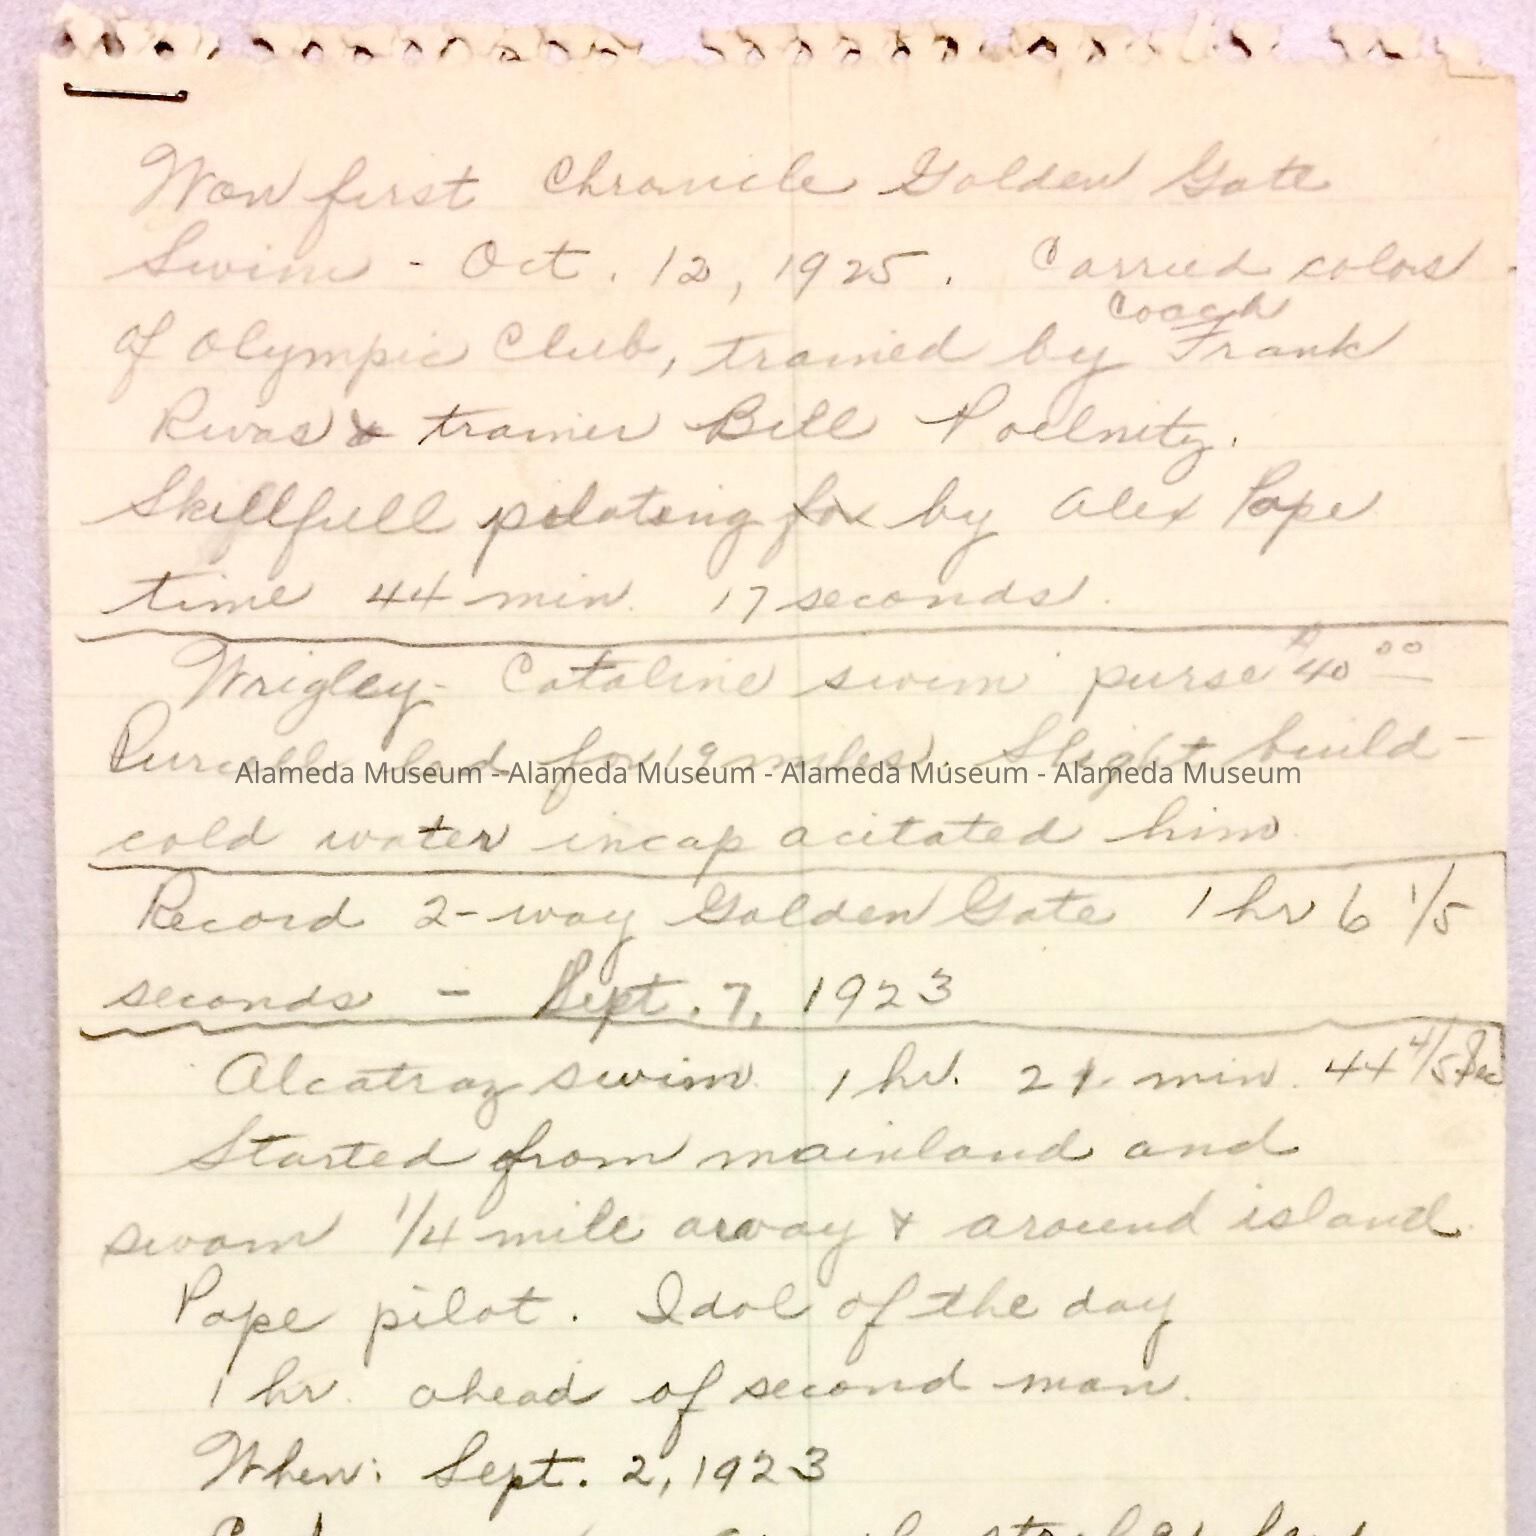 Won first Chronicle Golden Gate
Swim - Oct. 12, 1925. Carried colors
of Olympic Club, trained by coach Frank
Rivas & trainer Bill Poelnitz.
Skillfull piloting for by Alex Pope
time 44 min. 17 seconds.
Wrigley - Cataline swim purse $40 00
Purcell led for 19 miles. Slight build -
Alameda Museum - Alameda Museum - Alameda Museum - Alameda Museum
cold water incapacitated him
Record 2-way Golden Gate 1 hr 6 1/5
seconds - Sept. 7, 1923
Alcatraz swim 1 hr. 21 min. 44 4/5 Sec
Started from mainland and
swam 1/4 mile away & around island
Pope pilot. Idol of the day
1 hr. ahead of second man.
When: Sept. 2, 1923